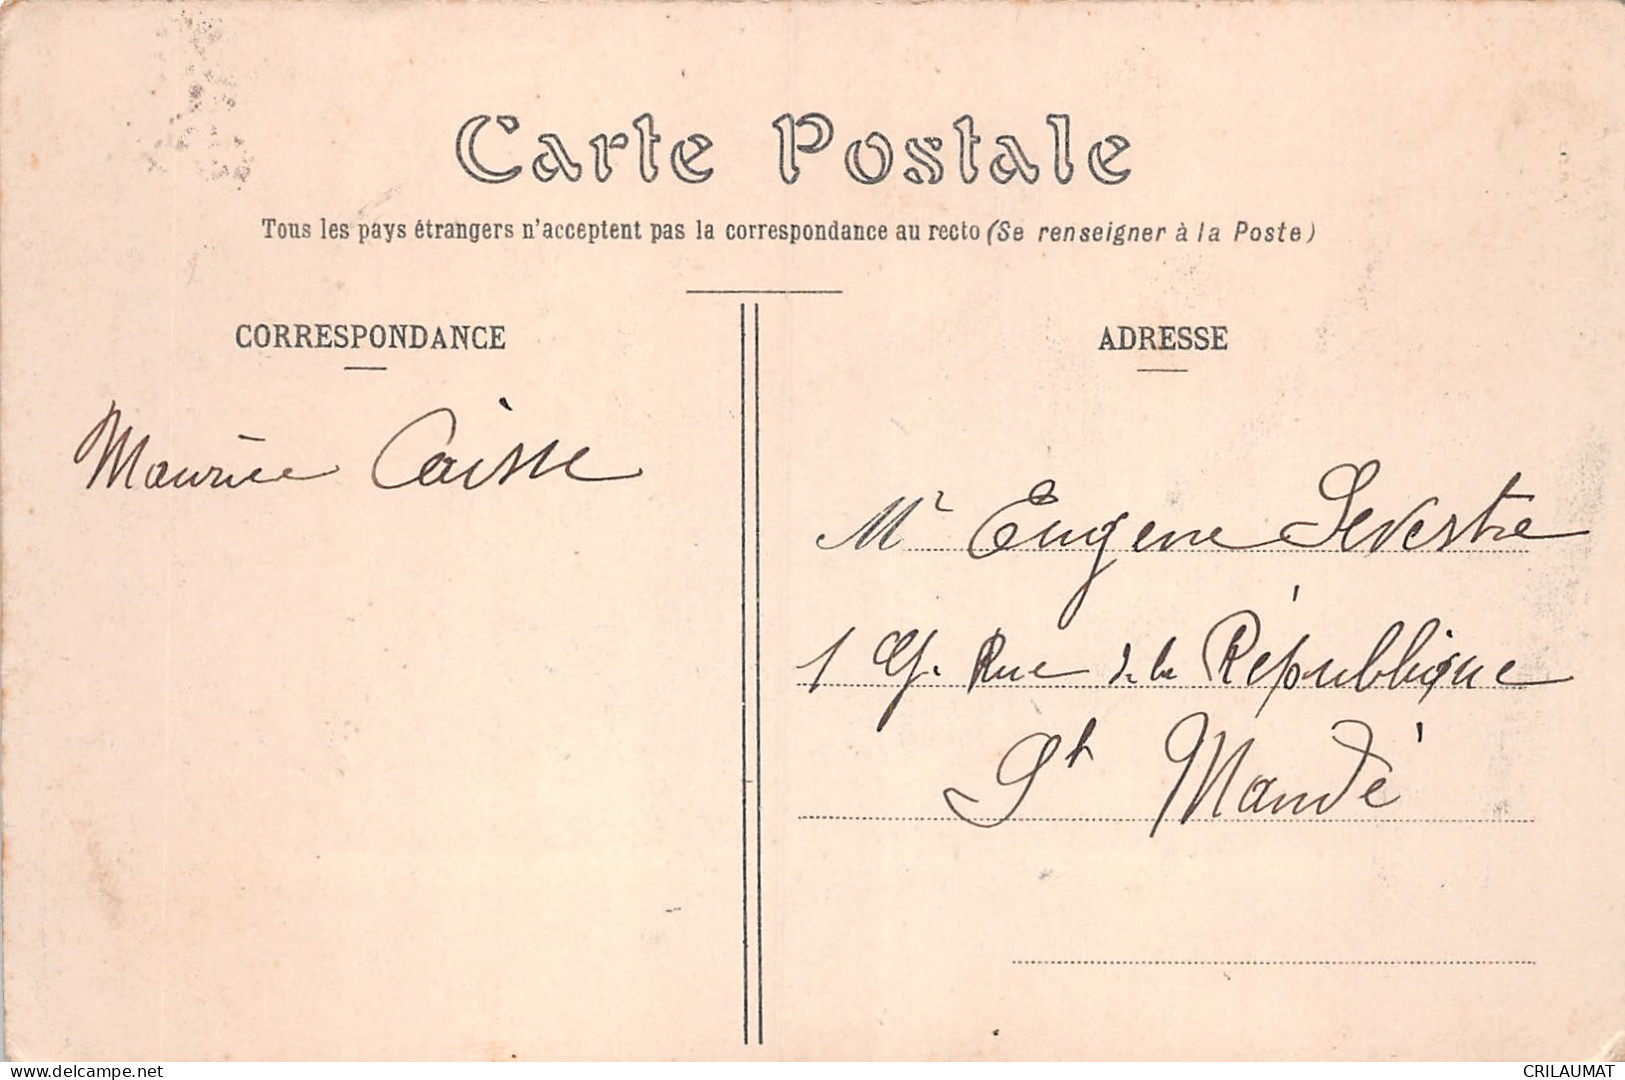 Carte Postale
Tous les pays étrangers n'acceptent pas la correspondance au recto (Se renseigner à la Poste)
CORRESPONDANCE
ADRESSE
Maurice Caisse
Mr Eugene Sevestre
1 Rue de la République
St Mandé
delcampe.net
CRILAUMAT